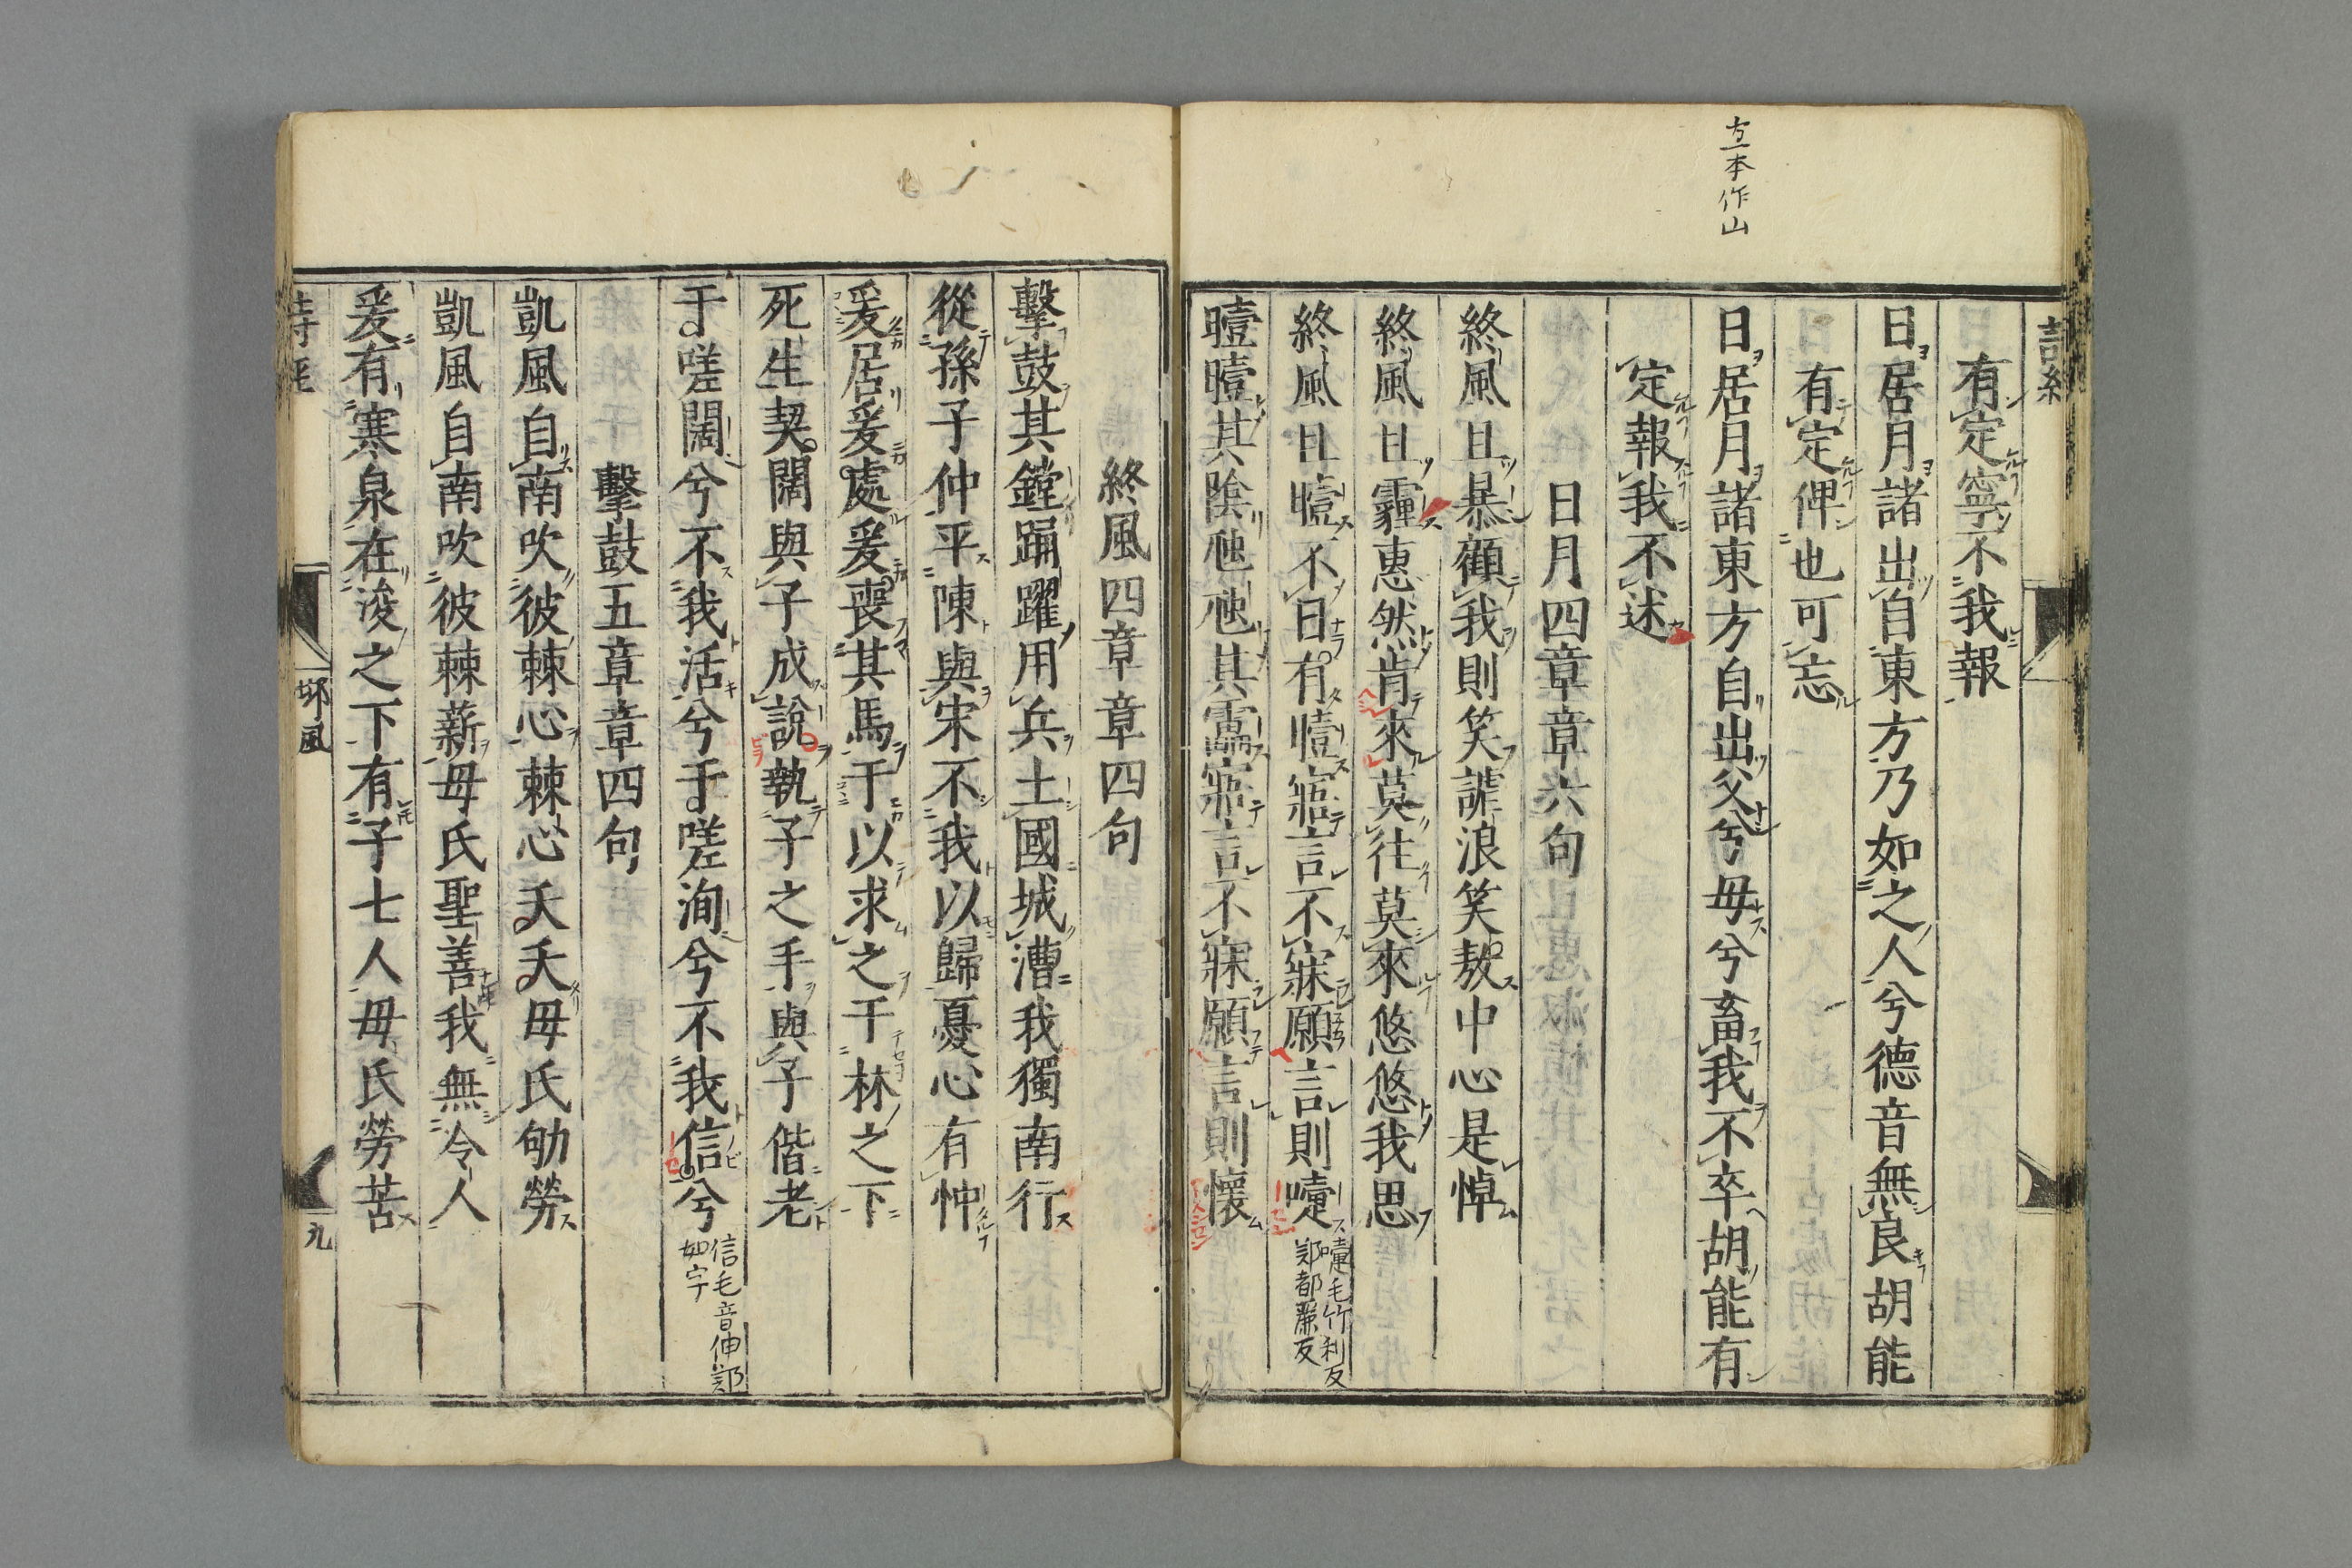 有定寧不我報
日居月諸出自東方乃如之人兮德音無良胡能
有定俾也可忘
日居月諸東方自出父兮母兮畜我不卒胡能有
定報我不述
日月四章章六句
終風且暴顧我則笑謔浪笑敖中心是悼
終風且霾惠然肯來莫往莫來悠悠我思
終風且曀不日有曀寤言不寐願言則嚏
嚏毛竹利反
鄭都麗反
曀曀其陰虺虺其靁寤言不寐願言則懷
終風四章章四句
擊鼓其鏜踊躍用兵土國城漕我獨南行
從孫子仲平陳與宋不我以歸憂心有忡
爰居爰處爰喪其馬于以求之于林之下
死生契闊與子成說執子之手與子偕老
于嗟闊兮不我活兮于嗟洵兮不我信兮
信毛音伸鄭
如字
擊鼓五章章四句
凱風自南吹彼棘心棘心夭夭母氏劬勞
凱風自南吹彼棘薪母氏聖善我無令人
爰有寒泉在浚之下有子七人母氏勞苦
詩經
邶風
九